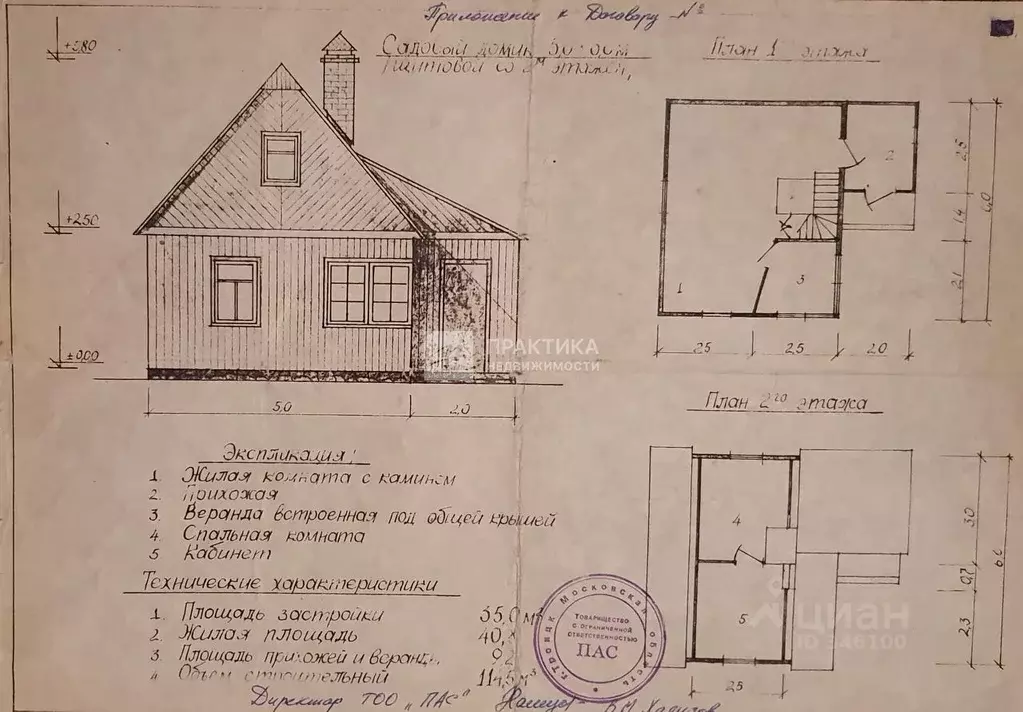 Приложение к Договору №
Садовый домик 5,0×6,0м
щитовой со 2м этажем,
План 1 этажа
+5,80
+2,50
±0,00
5,0
2,0
1
2
3
2,5
1,4
2,1
6,0
2,5
2,5
2,0
ПРАКТИКА
НЕДВИЖИМОСТИ
План 2го этажа
4
5
3,0
0,7
2,3
6,0
2,5
Экспликация:
1. Жилая комната с камином
2. Прихожая
3. Веранда встроенная под общей крышей
4 Спальная комната
5 Кабинет
Технические характеристики
1. Площадь застройки 35,0 м²
2. Жилая площадь 40,
3. Площадь прихожей и веранды 9,2
4 Объем строительный 114,5 м³
г. Троицк Московская область
ТОВАРИЩЕСТВО
С ОГРАНИЧЕННОЙ
ОТВЕТСТВЕННОСТЬЮ
ПАС
циан
ID 346100
Директор ТОО „ПАС"